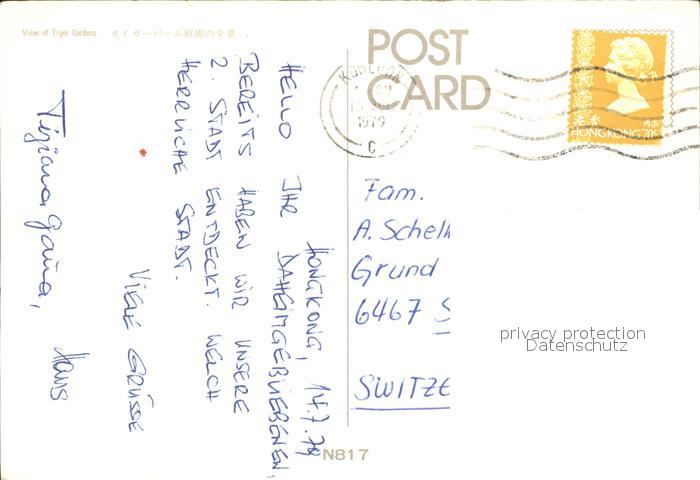 View of Tiger Gardens タイガーバーム庭園の全景.
POST
CARD
KOWLOON
1979
C
香港
HONG KONG 70¢
HONGKONG, 14.7.79
HELLO IHR DAHEIMGEBLIEBENEN,
BEREITS HABEN WIR UNSERE
2. STADT ENTDECKT. WELCH
HERRLICHE STADT.
VIELE GRÜSSE
Hans
Fam.
A. Schell
Grund
6467 S
SWITZE
privacy protection
Datenschutz
N817